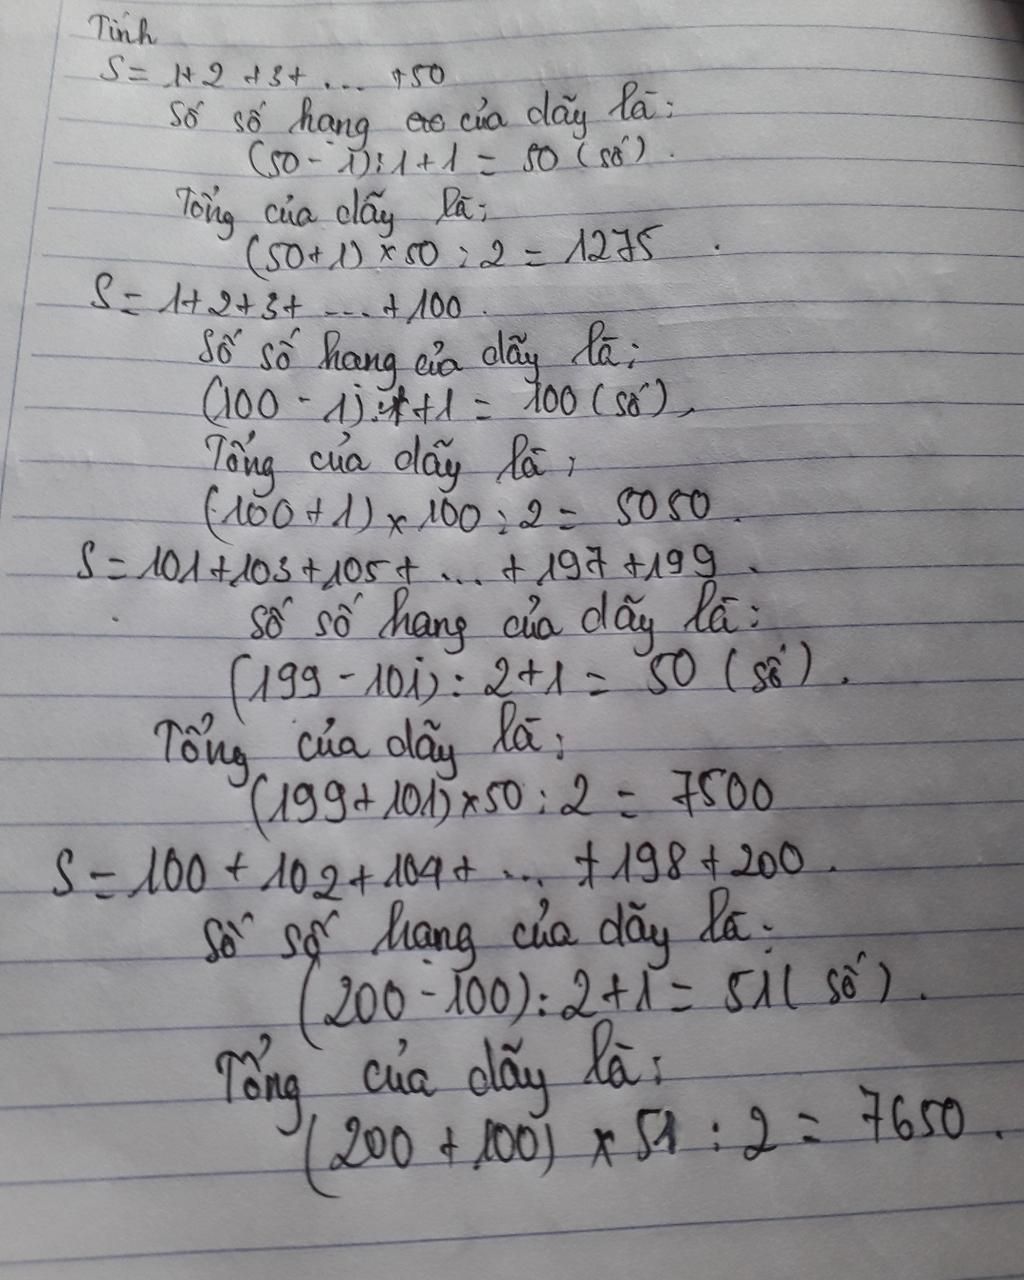 Tính
S = 1+2+3+ ... +50
Số số hạng của dãy là:
(50-1):1+1 = 50 (số).
Tổng của dãy là:
(50+1)×50:2 = 1275.
S = 1+2+3+ ... +100.
Số số hạng của dãy là:
(100-1):1+1 = 100 (số).
Tổng của dãy là:
(100+1)×100:2 = 5050.
S = 101+103+105+ ... +197+199.
Số số hạng của dãy là:
(199-101):2+1 = 50 (số).
Tổng của dãy là:
(199+101)×50:2 = 7500
S = 100+102+104+ ... +198+200.
Số số hạng của dãy là:
(200-100):2+1 = 51 (số).
Tổng của dãy là:
(200+100)×51:2 = 7650.